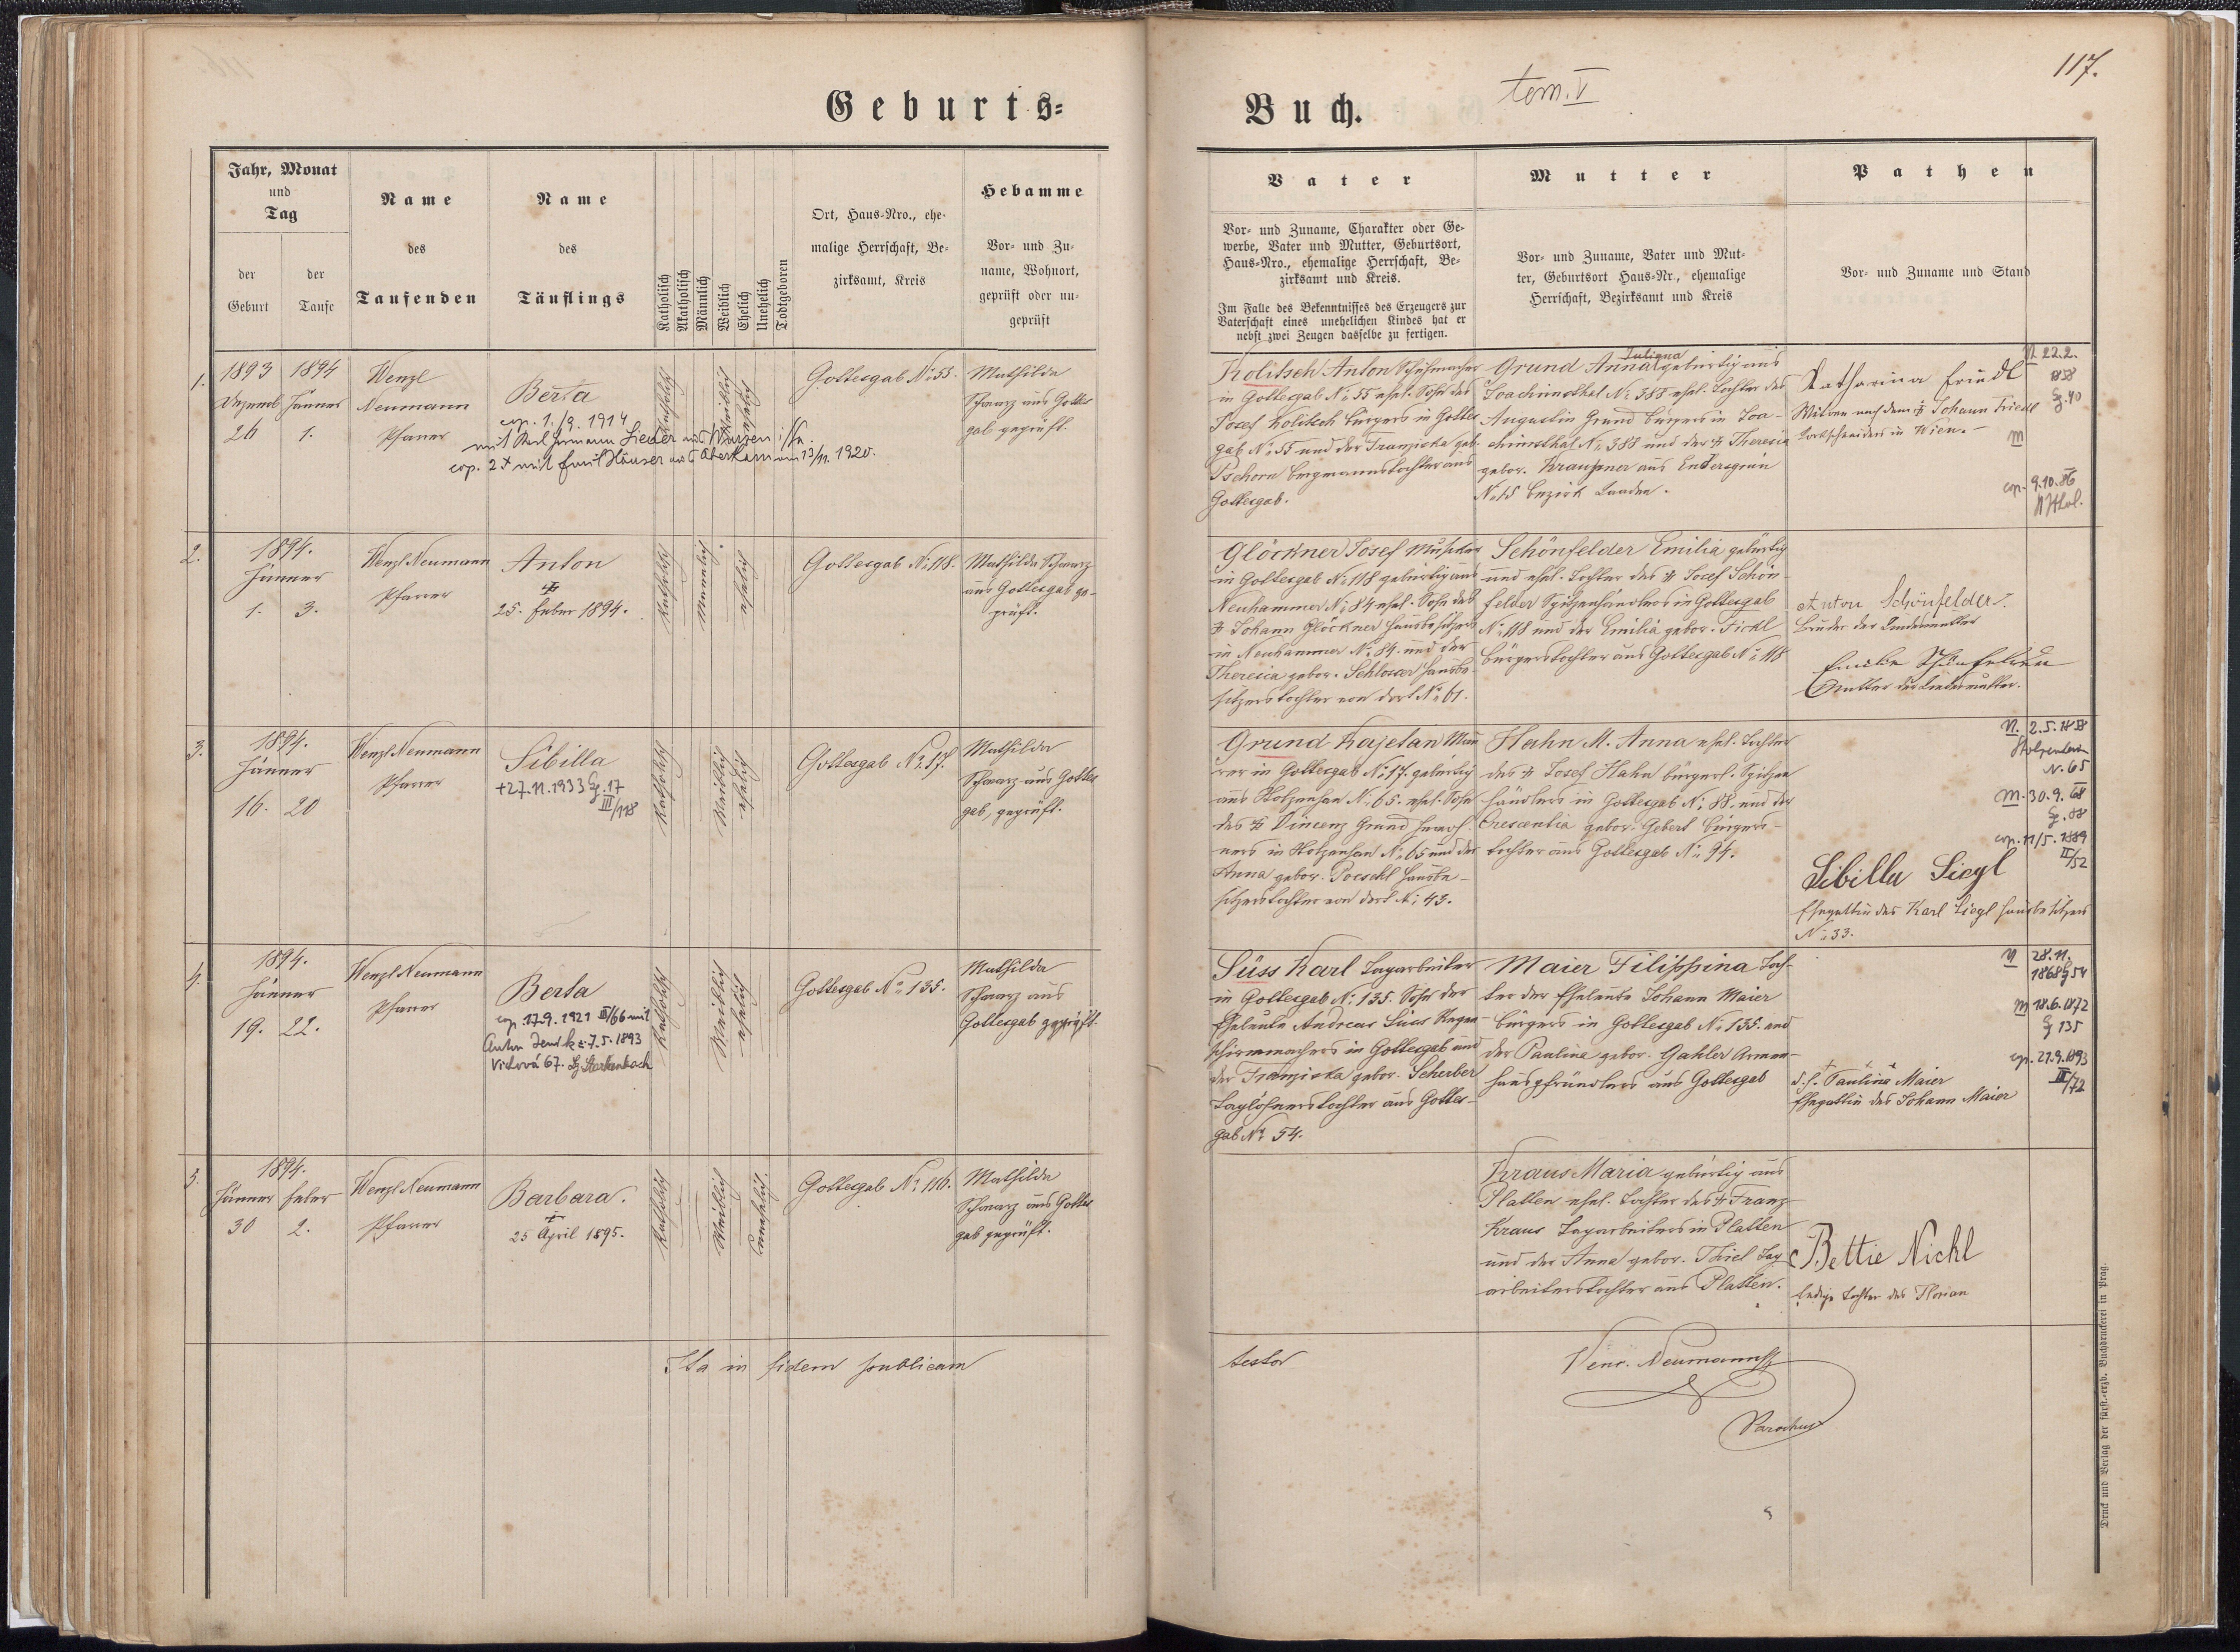 117.
tom. V
Geburts=
Buch.
Jahr, Monat
und
Tag
der
Geburt
der
Taufe
Name
des
Taufenden
Name
des
Täuflings
Katholisch
Akatholisch
Männlich
Weiblich
Ehelich
Unehelich
Todtgeboren
Ort, Haus-Nro., ehe-
malige Herrschaft, Be-
zirksamt, Kreis
Hebamme
Vor- und Zu-
name, Wohnort,
geprüft oder un-
geprüft
Vater
Vor- und Zuname, Charakter oder Ge-
werbe, Vater und Mutter, Geburtsort,
Haus-Nro., ehemalige Herrschaft, Be-
zirksamt und Kreis.
Im Falle des Bekenntnisses des Erzeugers zur
Vaterschaft eines unehelichen Kindes hat er
nebst zwei Zeugen dasselbe zu fertigen.
Mutter
Vor- und Zuname, Vater und Mut-
ter, Geburtsort Haus-Nr., ehemalige
Herrschaft, Bezirksamt und Kreis
Pathen
Vor- und Zuname und Stand
1.
1893
Dezemb
26
1894
Jänner
1.
Wenzl
Neumann
Pfarrer
Berta
cop. 1./9. 1914
mit Karl Hermann Lieder aus Wurzen i/Sa.
cop. 2× mit Emil Häuser aus Oberkarn am 13/11. 1920.
Katholisch
Weiblich
ehelich
Gottesgab N: 55.
Mathilda
Schwarz aus Gottes
gab geprüft.
Kolitsch Anton Schuhmacher
in Gottesgab N: 55 ehel. Sohn des
Josef Kolitsch Bürgers in Gottes
gab N: 55 und der Franziska geb.
Pschorn Bergmannstochter aus
Gottesgab.
Juliana
Grund Anna gebürtig aus
Joachimsthal N: 388 ehel. Tochter des
Augustin Grund Bürgers in Joa-
chimsthal N: 388 und der † Theresia
gebor. Kraupner aus Endersgrün
N: 15 Bezirk Kaaden.
Katharina Friedl
Witwe nach dem † Johann Friedl
in Wien.
N 22.2.
858
G. 40
M
cop. 9.10.86
2.
1894.
Jänner
1. 3.
Wenzl Neumann
Pfarrer
Anton
†
25. Feber 1894.
Katholisch
Männlich
ehelich
Gottesgab N: 118.
Mathilda Schwarz
aus Gottesgab ge-
prüft.
Glöckner Josef Musiker
in Gottesgab N: 118 gebürtig aus
Neuhammer N: 84 ehel. Sohn des
† Johann Glöckner Hausbesitzers
in Neuhammer N: 84. und der
Theresia gebor. Schlosser Hausbe-
sitzerstochter von dort N: 61.
Schönfelder Emilia gebürtig
und ehel. Tochter des † Josef Schön-
felder Spitzenhändlers in Gottesgab
N: 118 und der Emilia gebor. Fickl
Bürgerstochter aus Gottesgab N: 118
Anton Schönfelder.
Bruder der Kindesmutter
Emilie Schönfelder
Mutter der Kindesmutter.
3.
1894.
Jänner
16. 20
Wenzl Neumann
Pfarrer
Sibilla
+27.11.1933 G. 17
III/118
Katholisch
Weiblich
ehelich
Gottesgab N: 17.
Mathilda
Schwarz aus Gottes
gab, geprüft.
Grund Kajetan Mau
rer in Gottesgab N: 17. gebürtig
aus Stolzenhan N: 65. ehel. Sohn
des † Vincenz Grund
ners in Stolzenhan N: 65 und der
Anna gebor. Poeschl Hausbe-
sitzerstochter von dort N: 43.
Hahn M. Anna ehel. Tochter
des † Josef Hahn bürgerl. Spitzen
händlers in Gottesgab N: 88. und der
Crescentia gebor. Gebert Bürgers-
tochter aus Gottesgab N: 94.
N. 2.5.1858
Stolzenhan
N. 65
M. 30.9.68
G. 88
cop. 11/5. 1889
II/52
Sibilla Siegl
Ehegattin des Karl Siegl Hausbesitzers
N: 33.
4.
1894.
Jänner
19. 22.
Wenzl Neumann
Pfarrer
Berta
cop. 17.9. 1921 III/66 mit
Anton Jenik *: 7.5. 1893
Vichová 67. Bz Starkenbach
Katholisch
Weiblich
ehelich
Gottesgab N: 135.
Mathilda
Schwarz aus
Gottesgab geprüft.
Süss Karl Tagarbeiter
in Gottesgab N: 135. Sohn der
Eheleute Andreas Süss Regen-
schirmmachers in Gottesgab und
der Franziska gebor. Scherber
Taglöhnerstochter aus Gottes-
gab N: 54.
Maier Filippina Toch-
ter der Eheleute Johann Maier
Bürgers in Gottesgab N: 135. und
der Paulina gebor. Gahler Armen-
hauspfründlers aus Gottesgab
+ + +
d. h. Paulina Maier
Ehegattin des Johann Maier
N 28.11.
1868 G 54
M 18.6.1872
G 135
cop. 21.9.1893
III/72
5.
1894.
Jänner Feber
30 2.
Wenzl Neumann
Pfarrer
Barbara.
†
25 April 1895.
Katholisch
Weiblich
unehelich.
Gottesgab N: 116.
Mathilda
Schwarz aus Gottes
gab geprüft.
Kraus Maria gebürtig aus
Platten ehel. Tochter des † Franz
Kraus Tagarbeiters in Platten
und der Anna gebor. Thiel Tag
arbeiterstochter aus Platten.
Bettie Nickl
ledige Tochter des Florian
Ita in fidem publicam
testor
Venc. Neumann
Parochus
Druck und Verlag der fürst.-erzb. Buchdruckerei in Prag.